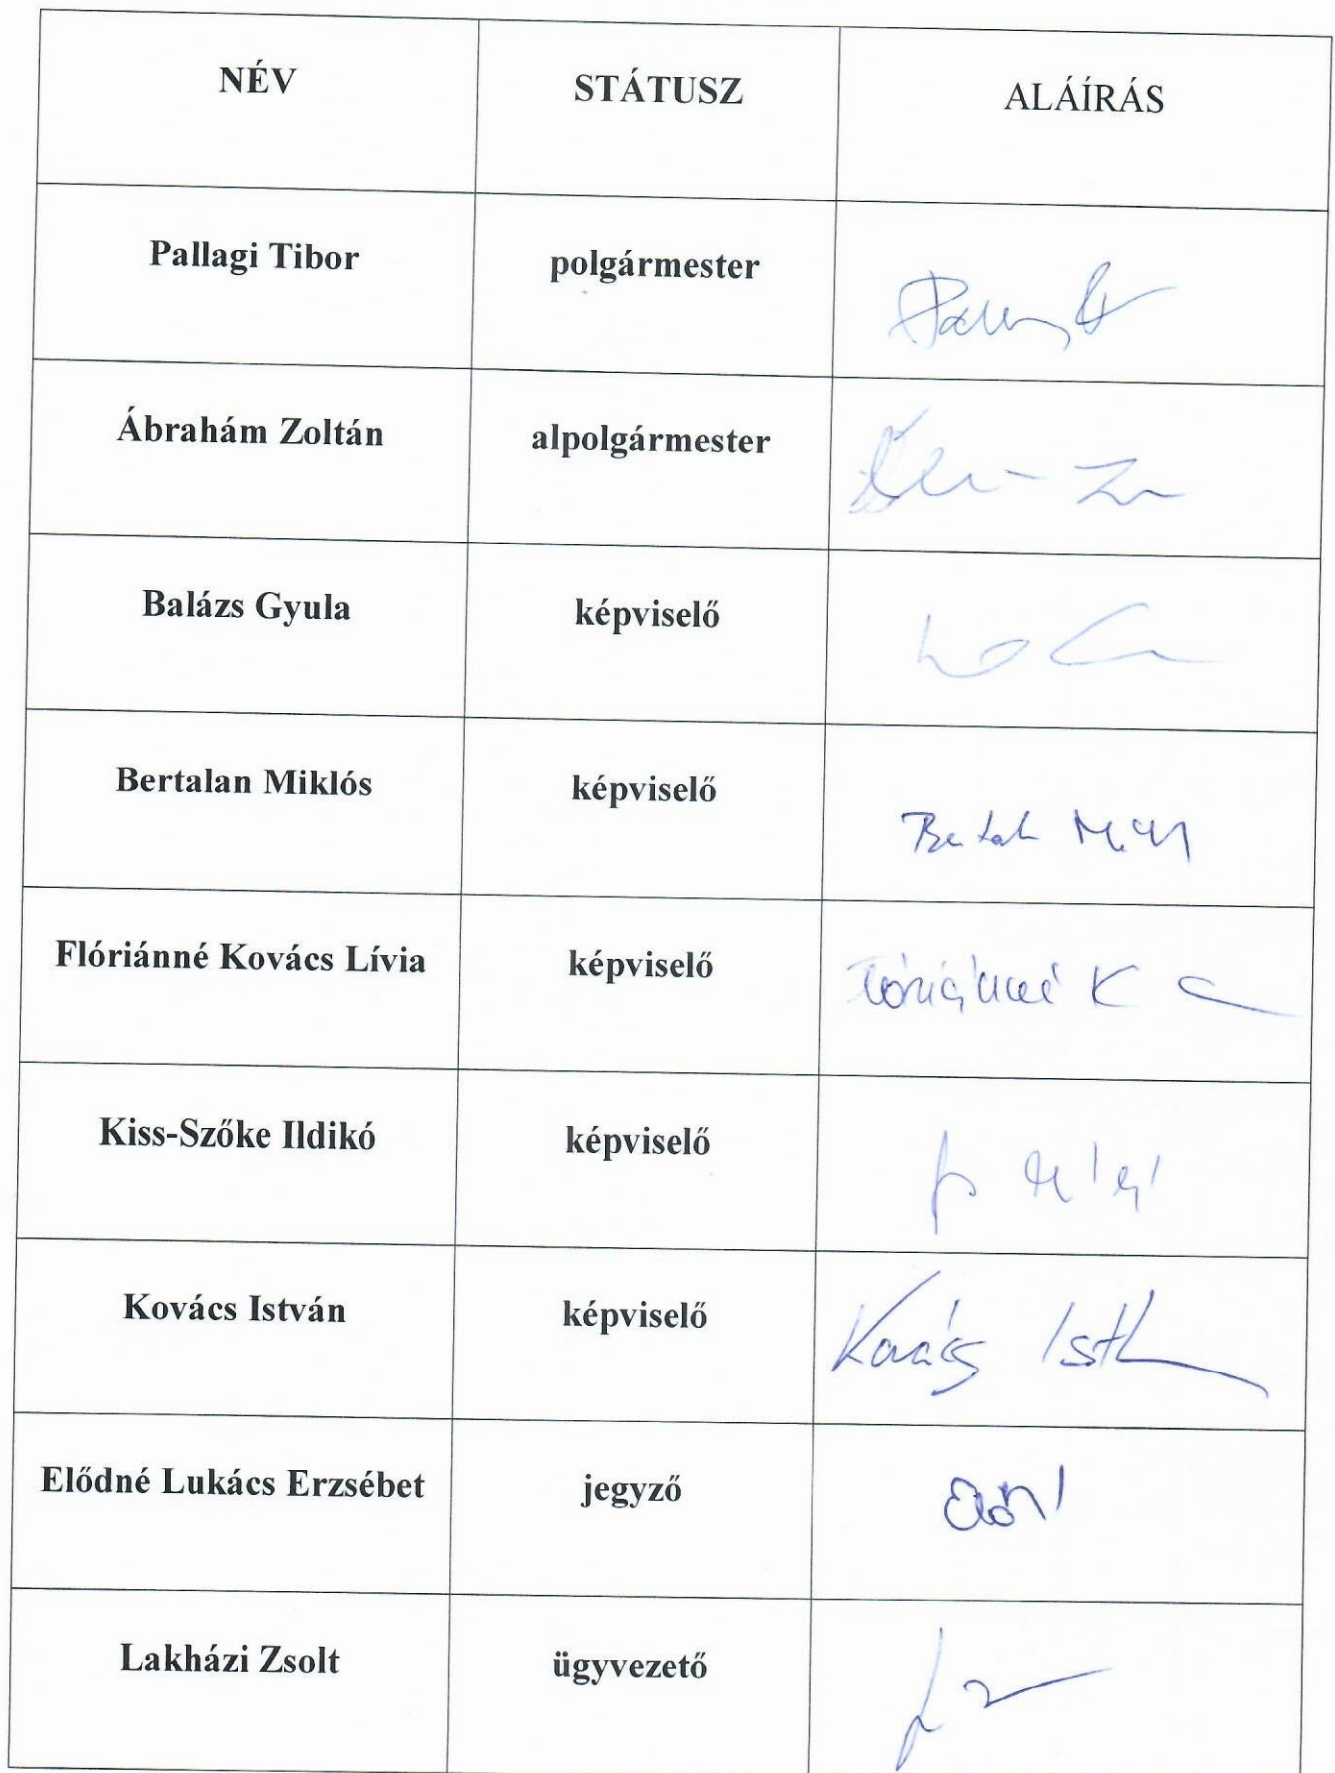 NÉV STÁTUSZ ALÁÍRÁS
Pallagi Tibor polgármester
Ábrahám Zoltán alpolgármester
Balázs Gyula képviselő
Bertalan Miklós képviselő
Flóriánné Kovács Lívia képviselő Flóriánné K
Kiss-Szőke Ildikó képviselő
Kovács István képviselő Kovács Ist
Elődné Lukács Erzsébet jegyző
Lakházi Zsolt ügyvezető